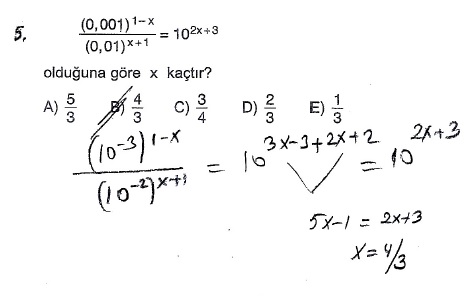 5. (0,001)^1-x / (0,01)^x+1 = 10^2x+3
olduğuna göre x kaçtır?
A) 5/3 B) 4/3 C) 3/4 D) 2/3 E) 1/3
(10^-3)^1-x / (10^-2)^x+1 = 10^3x-3+2x+2 = 10^2x+3
5x-1 = 2x+3
x=4/3